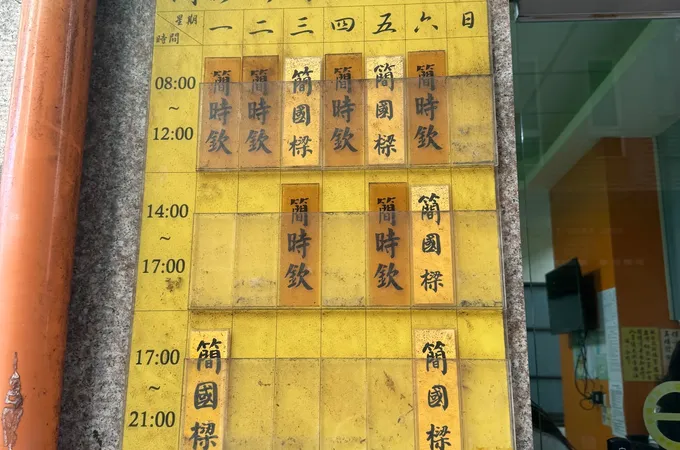 星期 一 二 三 四 五 六 日
時間
08:00 ~ 12:00 簡時欽 簡時欽 簡國樑 簡時欽 簡國樑 簡時欽
14:00 ~ 17:00 簡時欽 簡時欽 簡國樑
17:00 ~ 21:00 簡國樑 簡國樑